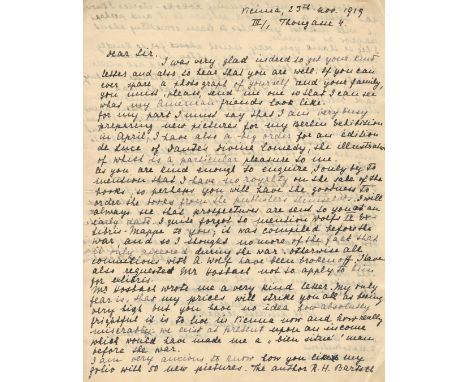 Vienna, 23th Nov. 1919
III/1, Thongasse 4.
Dear Sir.
I was very glad indeed to get your kind
letter and also to hear that you are well. If you can
ever spare a photograph of yourself and your family,
you must, please, send me one so that I can see
what my American friends look like.
For my part I must say that I am very busy
preparing new pictures for my Berlin Exhibition
in April. I have also a big order for an édition
de luxe of Dante's Divine Comedy, the illustration
of which is a particular pleasure to me.
As you are kind enough to enquire, I only beg to
mention that I have no royalty on the sale of the
books so perhaps you will have the goodness to
order the books from the publishers themselves. I will
always see that prospectuses are sent to you at an
early date. I quite forgot to mention Wolf's Ex-
libris-Mappe to you; it was compiled before the
war and so I thought no more of the fact that
it only appeared during the war. Otherwise all
connections with A. Wolf have been broken off. I have
also requested Mr. Hosbach not to apply to him
for exlibris.
Mr. Hosbach wrote me a very kind letter. My only
fear is, that my prices will strike you all as being
very high but you have no idea how absolutely
frightful it is to live in Vienna now and how really
miserably we exist at present upon an income
which would have made me a "bien situé" man
before the war.
I am very anxious to know how you like my
folio with 50 new pictures. The author R. H. Bartsch